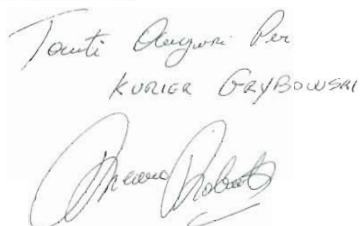 Tanti Auguri Per
KURIER GRYBOWSKI